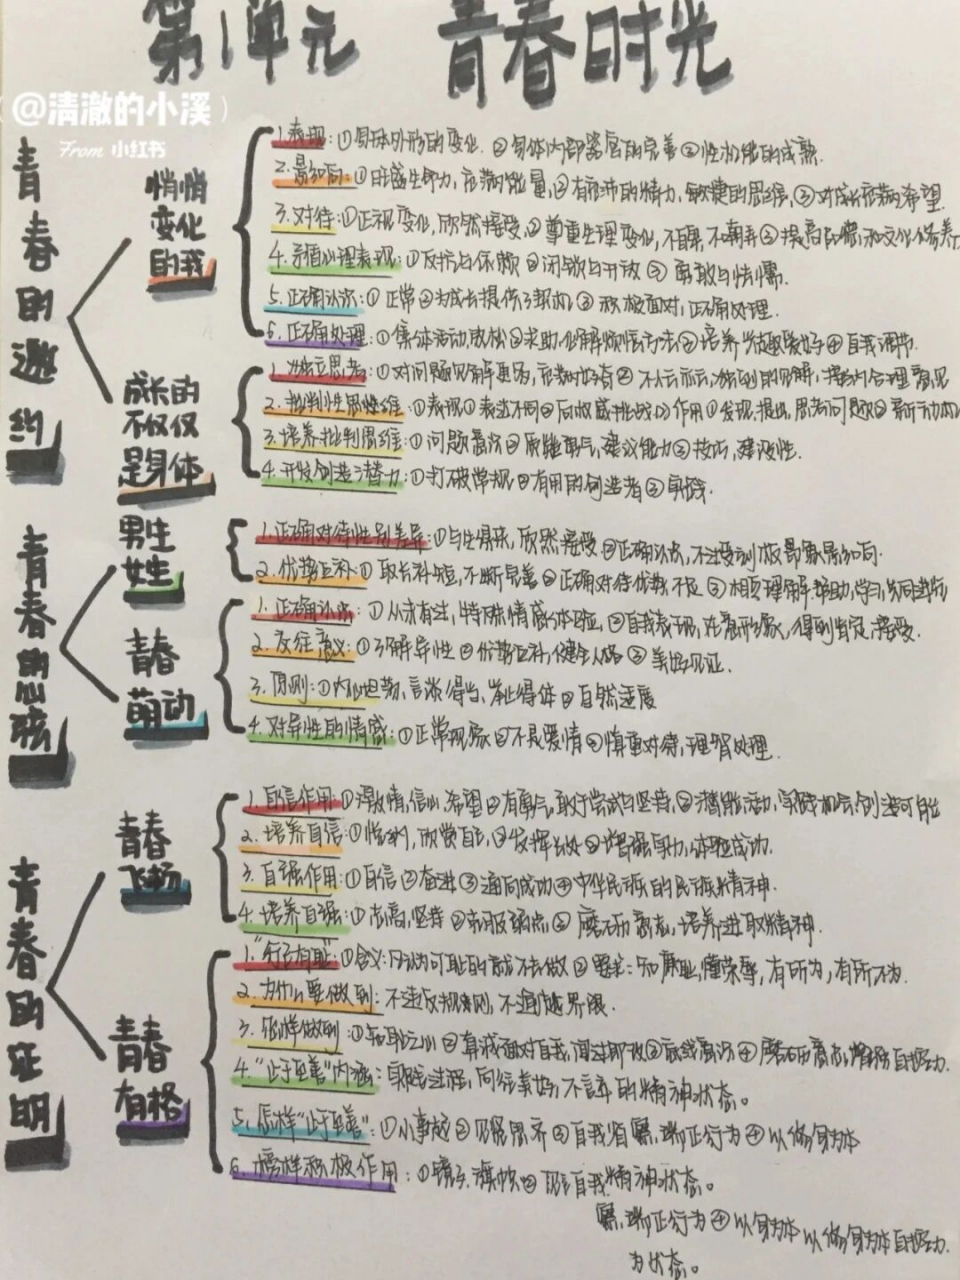 第1单元 青春时光
@清澈的小溪
From 小红书
青春的邀约
悄悄变化的我
1.表现:①身体外形的变化 ②身体内部器官的完善③性机能的成熟
2.影响:①旺盛生命力,充满能量,②有充沛的精力,敏捷的思维,③对成长充满希望
3.对待:①正视变化,欣然接受,②尊重生理变化,不自卑,不嘲弄③提高品德和文化修养
4.矛盾心理表现:①反抗与依赖②闭锁与开放③勇敢与怯懦
5.正确认识:①正常②为成长提供了契机③积极面对,正确处理.
6.正确处理:①集体活动放松②求助,化解烦恼方法③培养兴趣爱好④自我调节
成长的不仅仅是身体
1.独立思考:①对问题见解更多,充满好奇②不人云亦云,独到的见解,接纳合理意见
2.批判性思维:①表现①表达不同②向权威挑战②作用①发现,提出,思考问题②新动机
3.培养批判思维:①问题意识②质疑勇气,建议能力③技巧,建设性.
4.开发创造潜力:①打破常规②有用的创造者③实践.
青春的心弦
男生女生
1.正确对待性别差异:①与生俱来,欣然接受②正确认识,不过受到刻板印象影响
2.优势互补:①取长补短,不断完善②正确对待优势,不足③相互理解,帮助,学习,共同进步
青春萌动
1.正确认识:①从未有过,特殊情感体验,②自我表现,注意形象,得到肯定,接受.
2.交往意义:①了解异性②优势互补,健全人格③美好见证.
3.原则:①内心坦荡,言谈得当,举止得体②自然适度
4.对异性的情感:①正常现象②不是爱情③慎重对待,理智处理.
青春的证明
青春飞扬
1.自信作用:①激情,信心,希望②有勇气,敢于尝试与坚持,③潜能活动,实践机会,创造可能
2.培养自信:①悦纳,欣赏自己,②发挥长处③增强实力,体验成功.
3.自强作用:①自信②奋进③通向成功④中华民族的民族精神.
4.培养自强:①志高,坚持②克服弱点③磨砺意志,培养进取精神.
青春有格
1.“行己有耻”:①含义:凡认为可耻的就不去做②要求:知廉耻,懂荣辱,有所为,有所不为.
2.为什么要做到:不违反规则,不逾越界限.
3.怎样做到:①知耻之心②真诚面对自我,闻过即改③底线意识④磨砺意志,增强自控力.
4.“止于至善”内涵:实践过程,向往美好,不言弃的精神状态。
5.怎样“止于至善”:①小事起②见贤思齐③自我省察,端正行为④以修身为本
6.榜样积极作用:①镜子,旗帜②影响自我精神状态。
察,端正行为④以身为本 以修身为本自控力.
为状态。